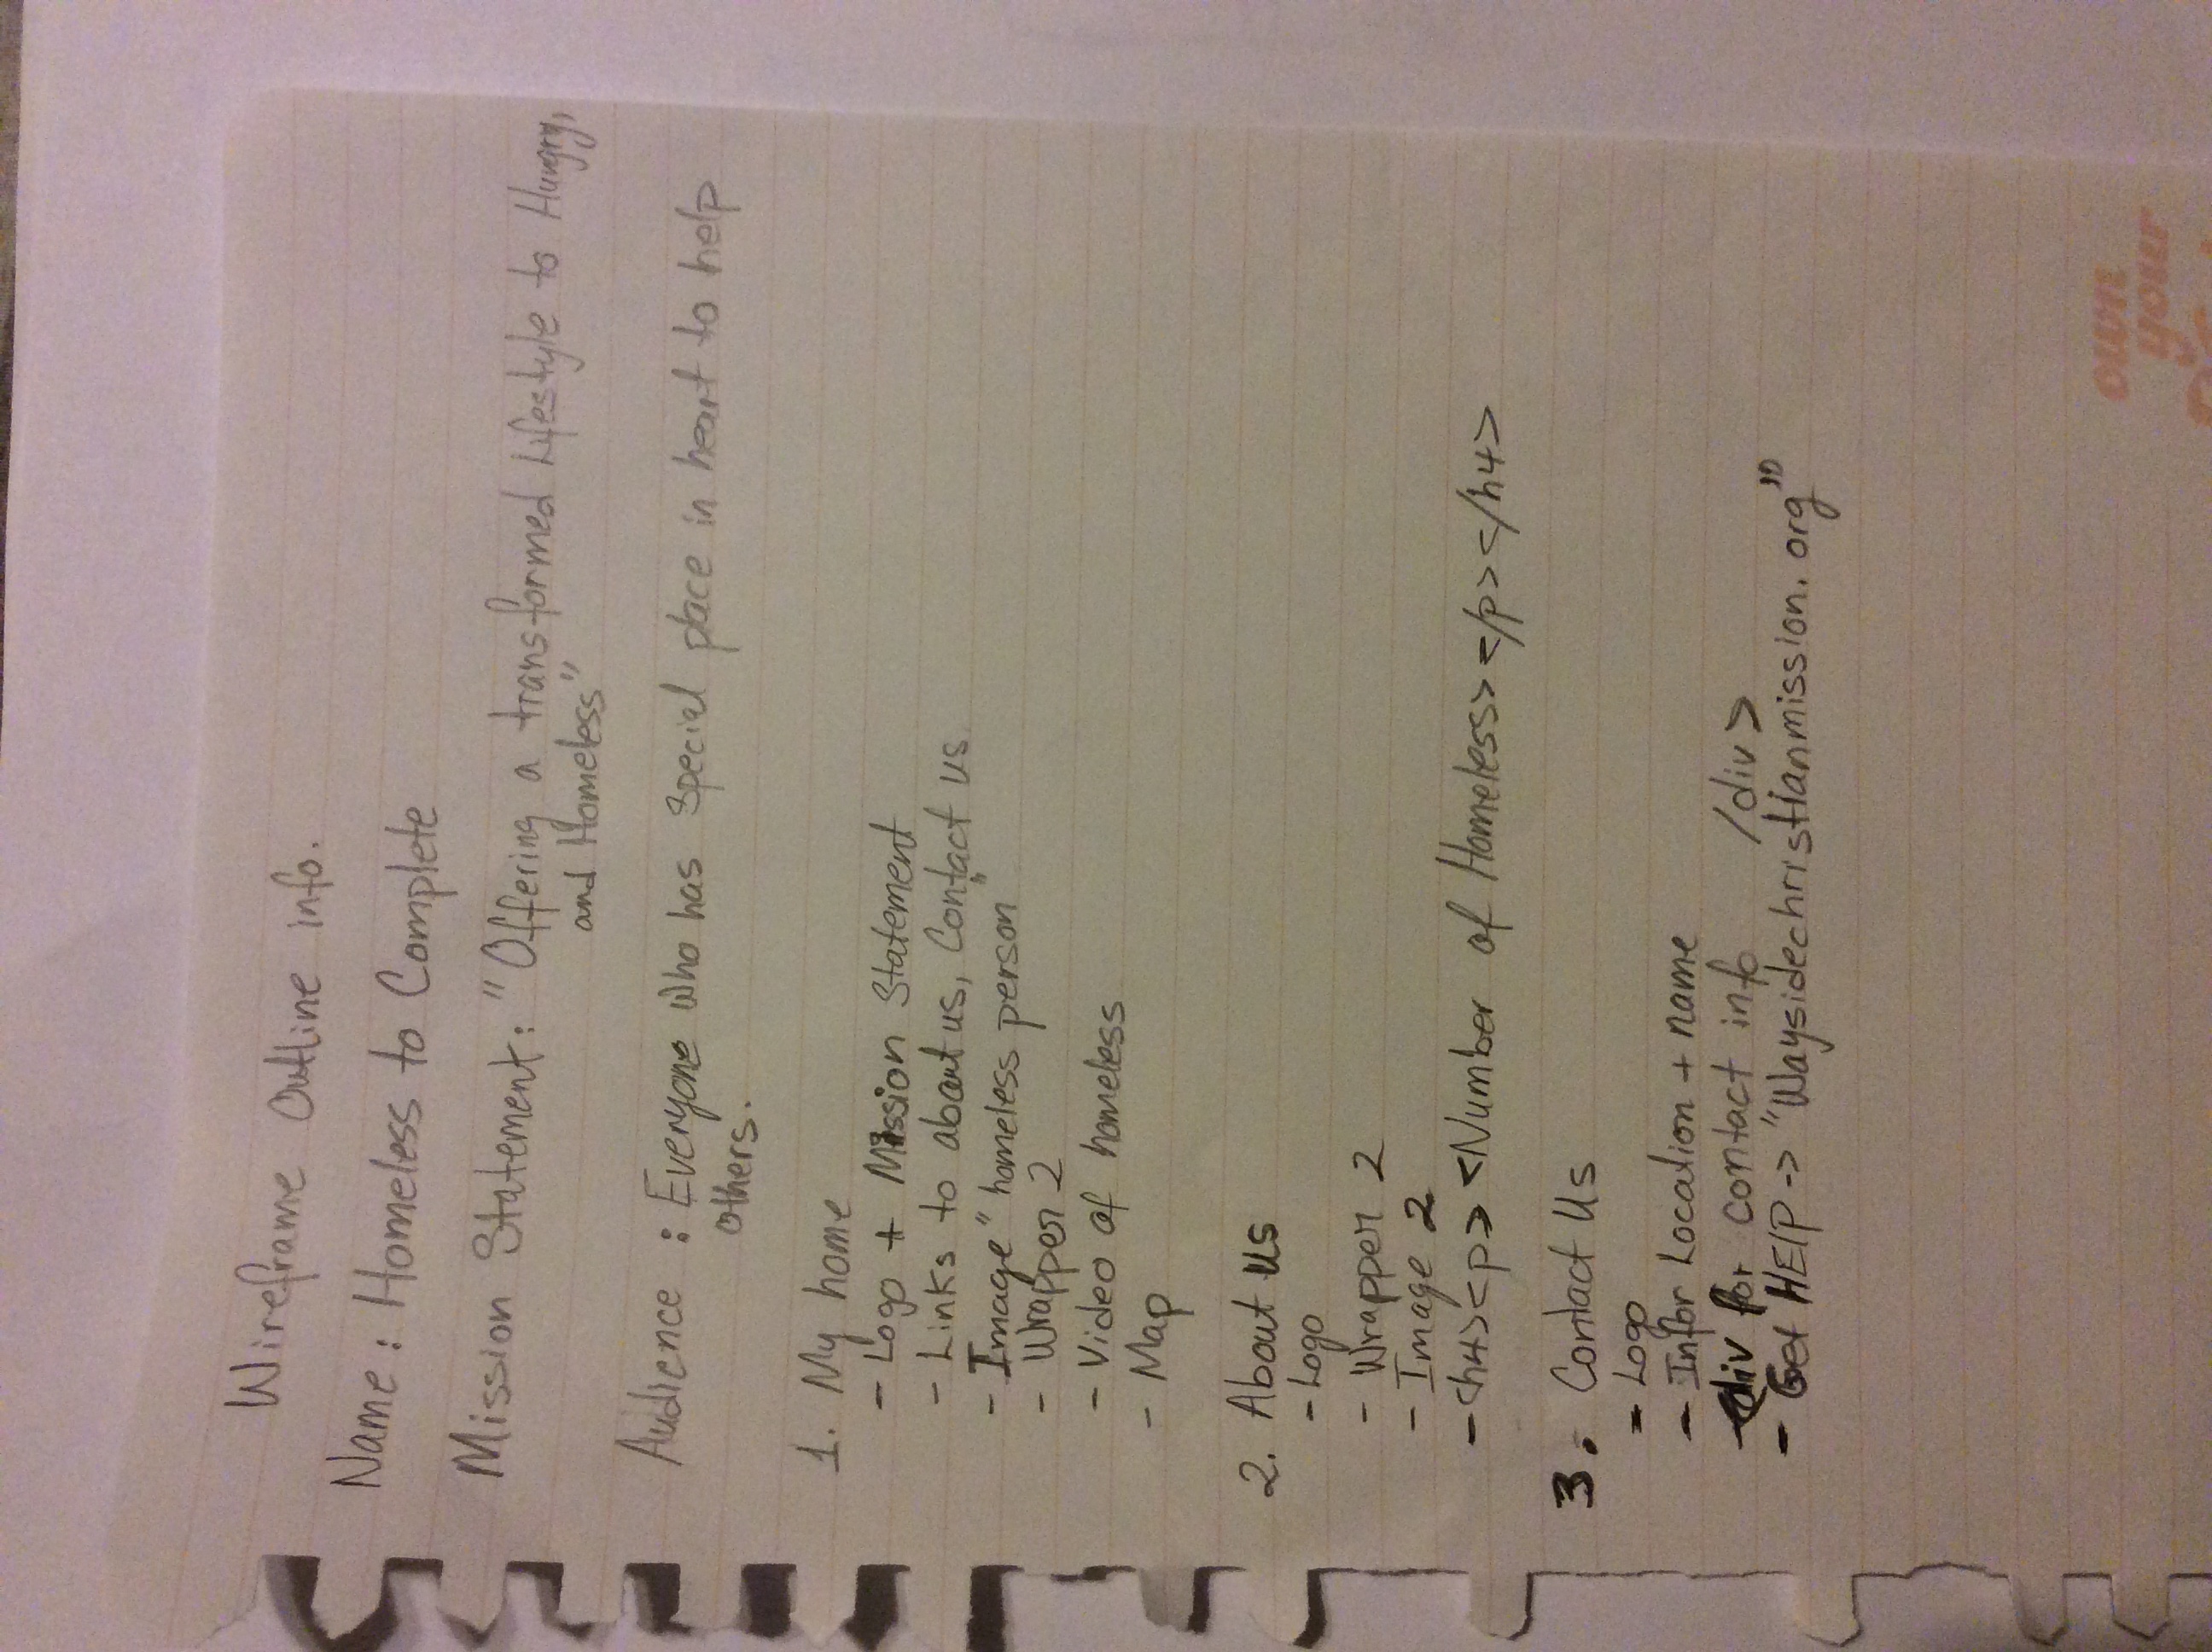 Wireframe Outline info.
Name : Homeless to Complete
Mission Statement: "Offering a transformed Lifestyle to Hungry,
and Homeless"
Audience : Everyone who has special place in heart to help
others.
1. My home
- Logo + Mission Statement
- Links to about us, Contact us
- Image "homeless person"
- Wrapper 2
- Video of homeless
- Map
2. About us
- Logo
- Wrapper 2
- Image 2
- <h4><p> <Number of Homeless> </p></h4>
3. Contact Us
- Logo
- Infor Location + name
- <div for contact info /div>
- Get HElP -> "Waysidechristianmission. org"
own
your